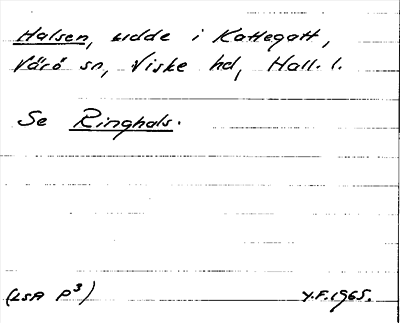 Halsen, udde i Kattegatt,
Värö sn, Viske hd, Hall. l.
Se Ringhals.
(LSA P³)
Y.F. 1965.